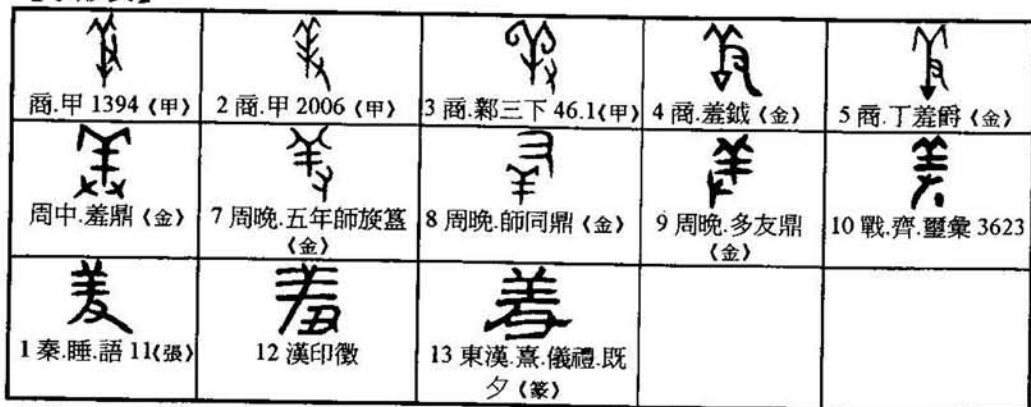 商.甲 1394《甲》
2 商.甲 2006《甲》
3 商.鄴三下 46.1《甲》
4 商.羞鉞《金》
5 商.丁羞爵《金》
周中.羞鼎《金》
7 周晚.五年師旋簋
《金》
8 周晚.師同鼎《金》
9 周晚.多友鼎
《金》
10 戰.齊.璽彙 3623
1 秦.睡.語 11《張》
12 漢印徵
13 東漢.熹.儀禮.既
夕《篆》